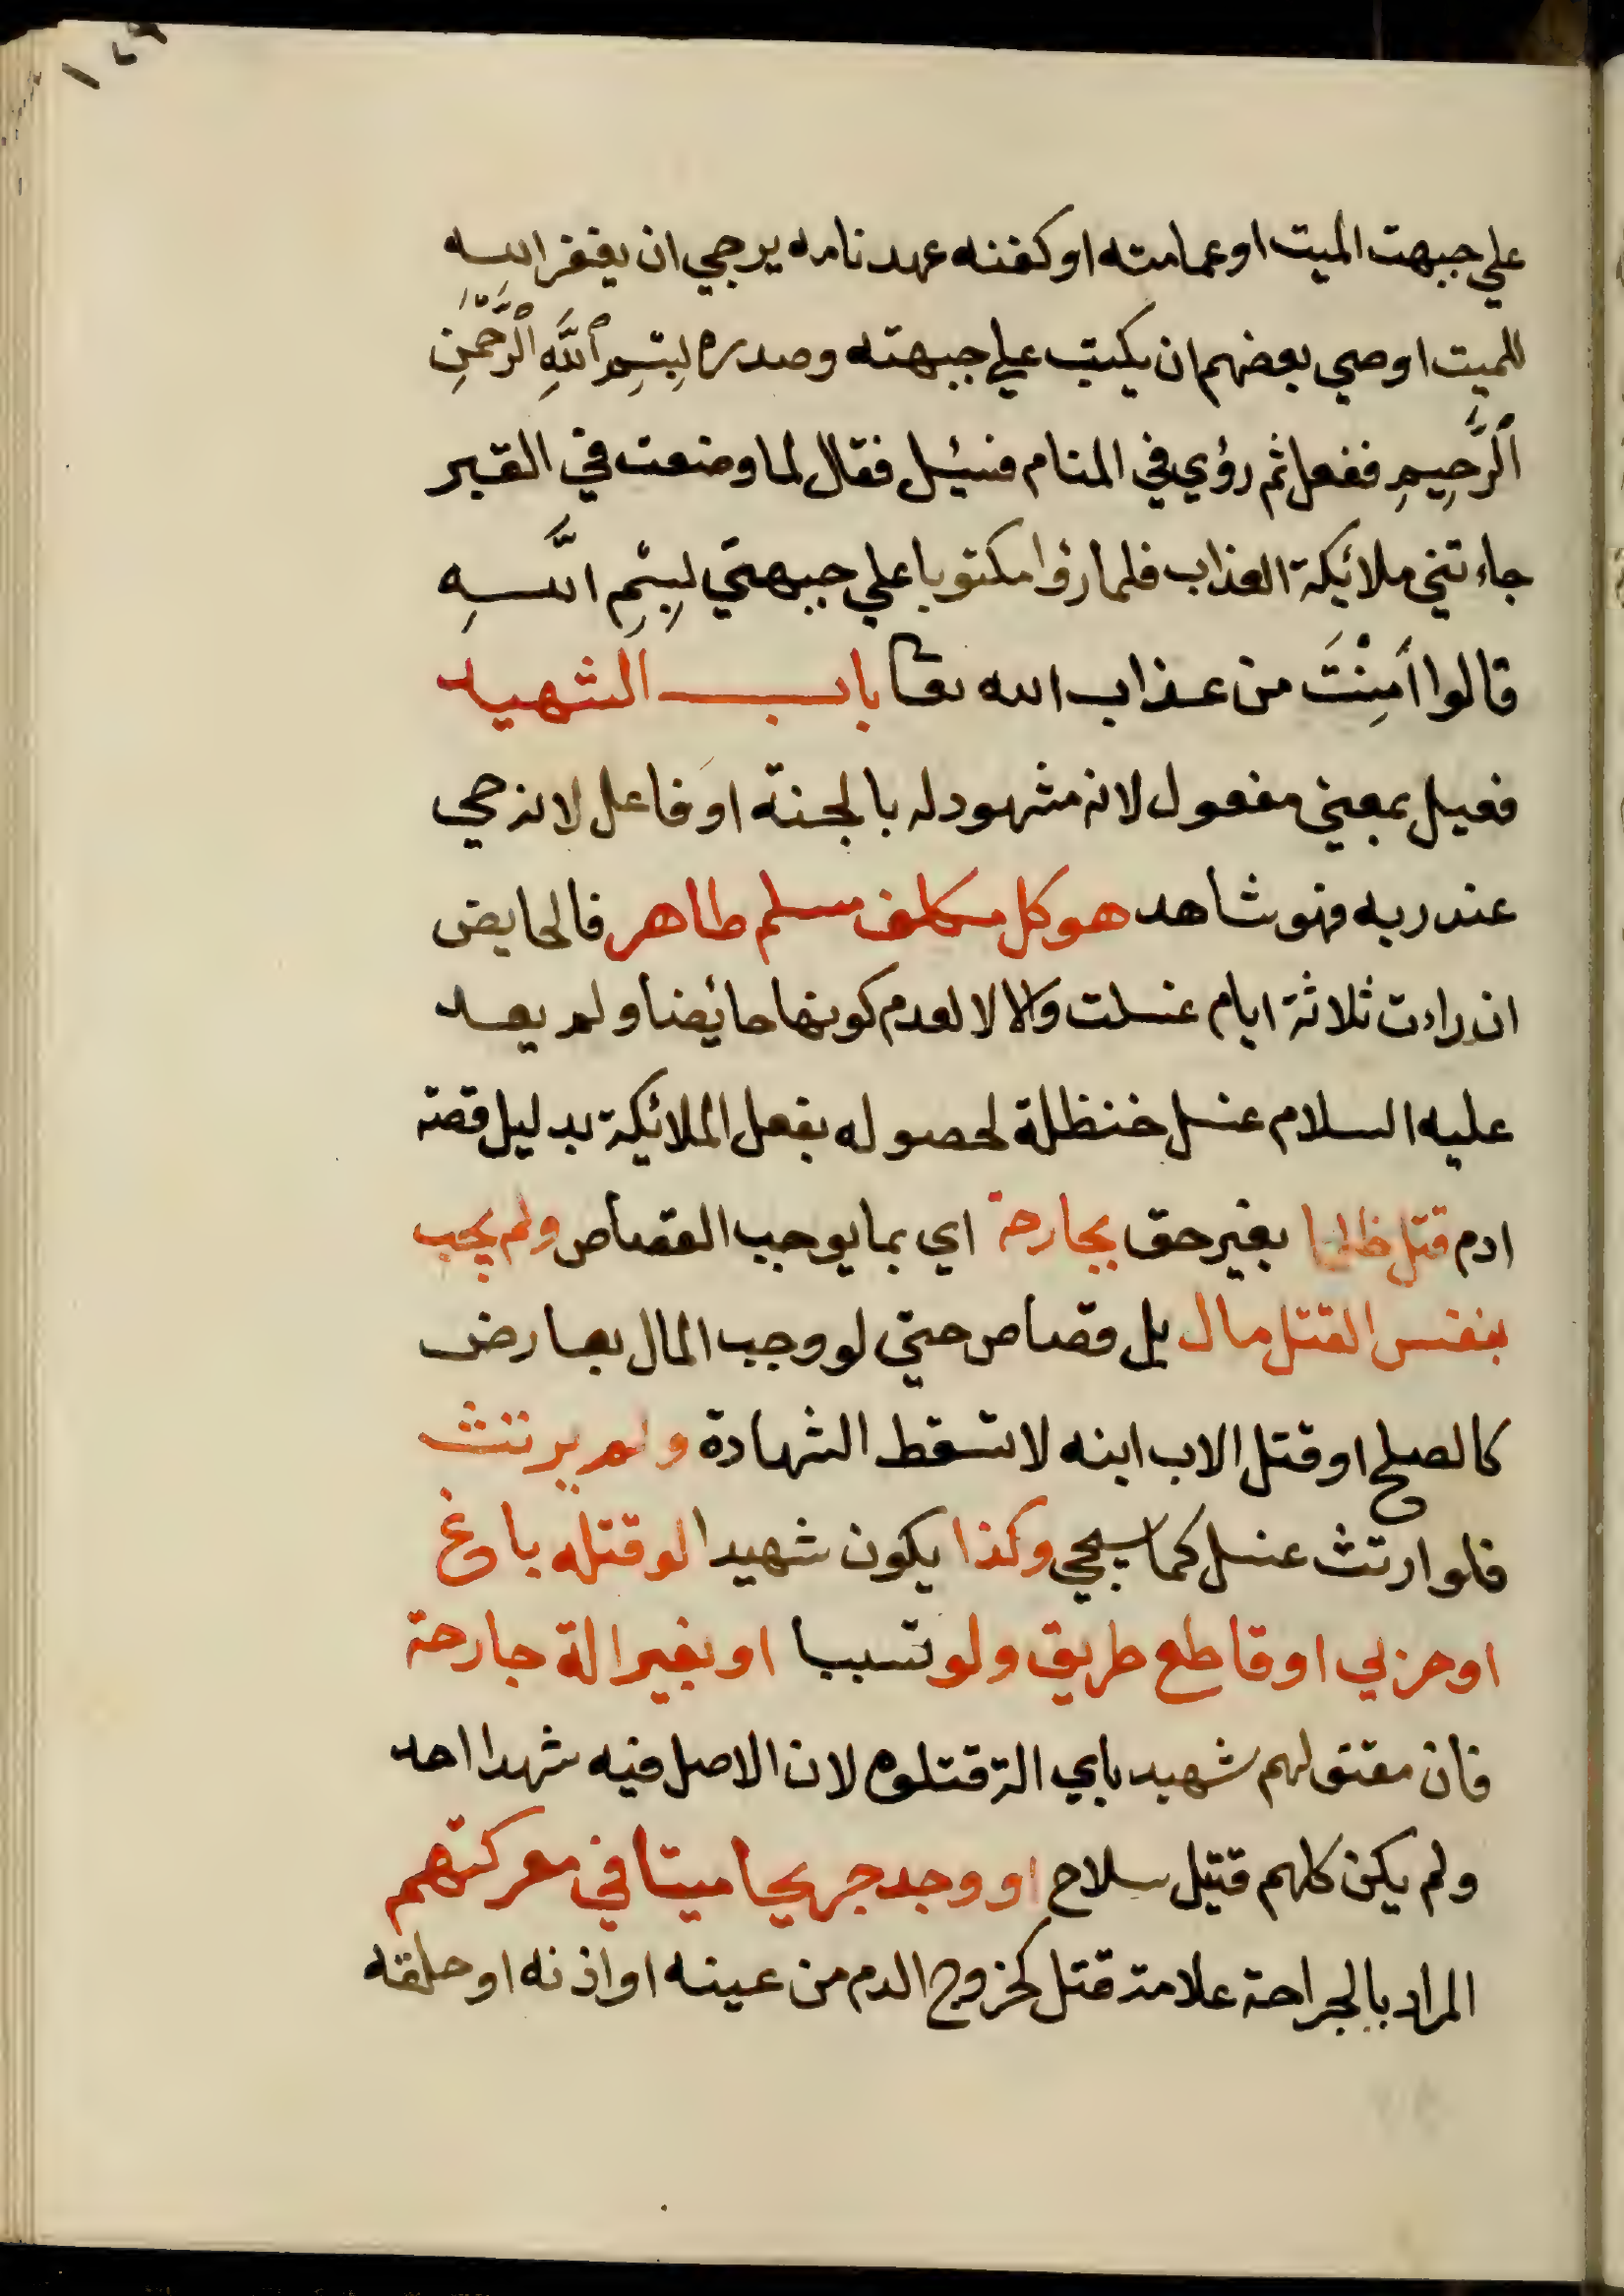 علي جبهت الميت او عمامته او كفنه عهد نامه يرجي ان يغفر الله
للميت اوصي بعضهم ان يكتب علي جبهته وصدره بِسْمِ ٱللَّهِ ٱلرَّحْمَنِ
ٱلرَّحِيمِ ففعل ثم رؤي في المنام فسئل فقال لما وضعت في القبر
جاءتني ملائكة العذاب فلما رؤا مكتوبا علي جبهتي بِسْمِ اللَّهِ
قالوا أَمِنْتَ من عذاب الله تعا باب الشهيد
فعيل بمعني مفعول لانه مشهود له بالجنة او فاعل لانه حي
عند ربه فهو شاهد هو كل مكلف مسلم طاهر فالحايض
ان راءت ثلاثة ايام غسلت والا لا لعدم كونها حائضا ولم يعد
عليه السلام غسل خنظلة لحصوله بفعل الملائكة بدليل قصة
ادم قتل ظلما بغير حق بجارحة اي بما يوجب القصاص ولم يجب
بنفس القتل مال بل قصاص حتي لو وجب المال بعارض
كالصلح او قتل الاب ابنه لا تسقط الشهادة ولم يرتث
فلو ارتث غسل كما سيجي وكذا يكون شهيدا لو قتله باغ
او حربي او قاطع طريق ولو تسببا او بغير الة جارحة
فان مقتولهم شهيد باي الة قتلوه لان الاصل فيه شهدا احد
ولم يكن كلهم قتيل سلاح او وجد جريحا ميتا في معركتهم
المراد بالجراحة علامة قتل كخروج الدم من عينه او اذنه او حلقه